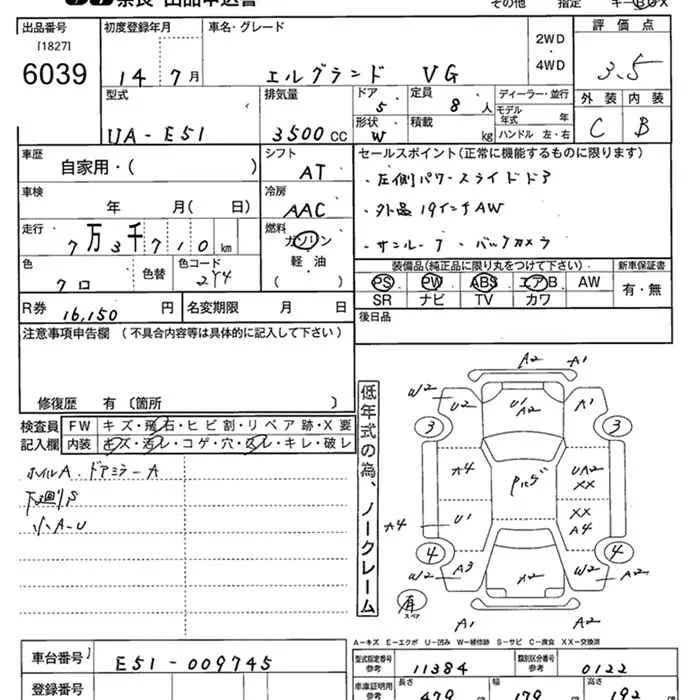 奈良 出品申込書 その他 指定
出品番号 初度登録年月 車名・グレード 2WD・4WD 評価点
[1827]
6039 14年7月 エルグランド VG 3.5
型式 排気量 ドア 定員 ディーラー・並行 外装 内装
UA-E51 3500cc 5 8人 モデル年式 年 C B
形状 W 積載 kg ハンドル 左・右
車歴 シフト セールスポイント(正常に機能するものに限ります)
自家用・( ) AT ・左側パワースライドドア
車検 冷房 ・外品19インチAW
年 月( 日) AAC ・サンルーフ ・バックカメラ
走行 燃料
7万3千710km ガソリン
軽・油
( )
色 色替 色コード 装備品(純正品に限り丸をつけて下さい) 新車保証書
クロ 2Y4 PS PW ABS エアB AW 有・無
SR ナビ TV カワ
R券 16,150円 名変期限 月 日 後日品
注意事項申告欄(不具合内容等は具体的に記入して下さい)
修復歴 有〔箇所 〕
検査員記入欄 FW キズ・飛石・ヒビ割・リペア跡・X要
内装 キズ・汚レ・コゲ・穴・スレ・キレ・破レ
ホイルA.ドアミラーA
下廻りS
小A-U
低年式の為、ノークレーム
A2 A1
W2 U2 U1 A2 A1
3 3
A4 UA2 XX
A4 U1 XX A4
4 4
W2 A3 A2 W2 A2
有 スペア
A1 A2
A-キズ E-エクボ U-凹み W-補修跡 S-サビ C-腐食 XX-交換済
車台番号 E51-009745 型式指定番号 参考 11384 類別区分番号 参考 0122
登録番号 車庫証明用 参考 長さ 479 幅 179 高さ 192